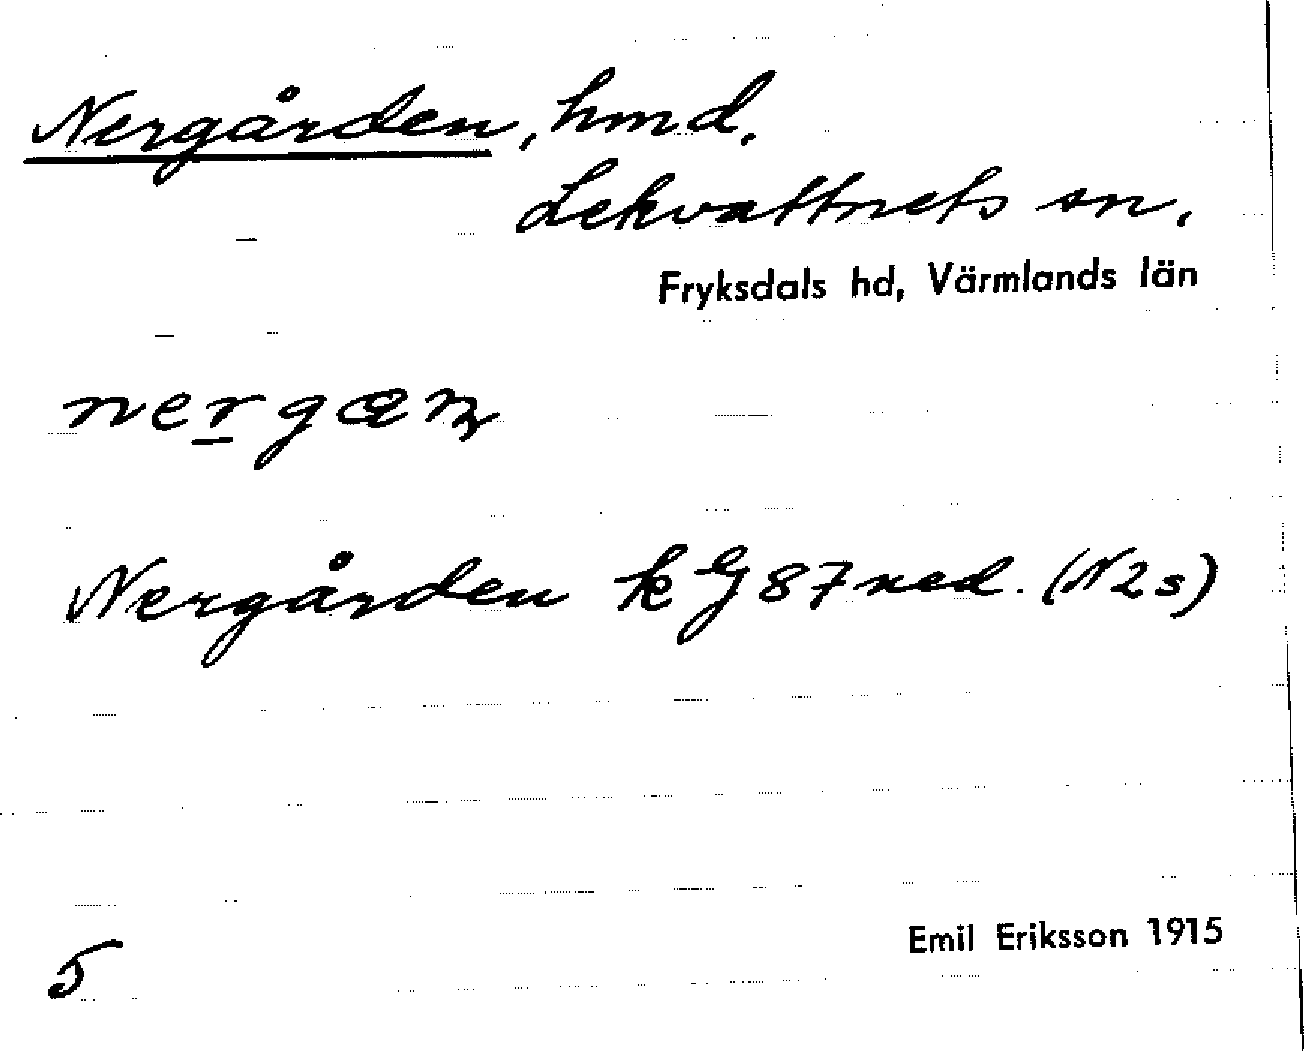 Nergården, hmd.
Lekvattnets sn.
Fryksdals hd, Värmlands län
nergæn
Nergården k G 87 ned. (N2s)
5
Emil Eriksson 1915